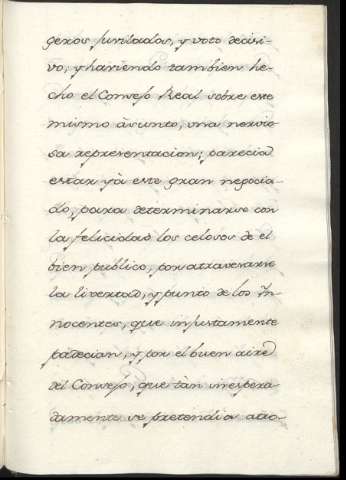 geros Jurilados, y voto decisi-
vo, y haviendo tambien he-
cho el Consejo Real sobre este
mismo àsunto, una nervio-
sa representacion; parecia
estar yà este gran negocia-
do, para determinarse con
la felicidad los celosos de el
bien publico, por atraverarse
la livertad, y punto de los In-
nocentes, que injustamente
padecian, y por el buen aire
del Consejo, que tàn inespera-
damente se pretendia atro-